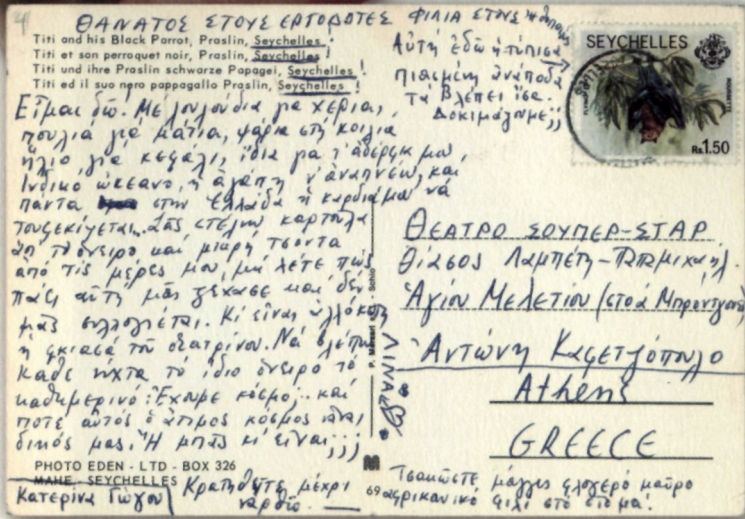 ΘΑΝΑΤΟΣ ΣΤΟΥΣ ΕΡΓΟΔΟΤΕΣ ΦΙΛΙΑ ΣΤΟΥΣ
Titi and his Black Parrot, Praslin, Seychelles !
Titi et son perroquet noir, Praslin, Seychelles !
Titi und ihre Praslin schwarze Papagei, Seychelles !
Titi ed il suo nero pappagallo Praslin, Seychelles !
Εἶμαι δῶ. Μέ λουλούδια γιά χέρια,
πουλιά γιά μάτια, ψάρια στή κοιλιά
ἥλιο γιά κεφάλι, ἴδια γιά τ' ἀδέρφια μου,
Ἰνδικό ὠκεανό, ἡ ἀγάπη ν' ἀναπνέω, καί
πάντα στήν Ἑλλάδα ἡ καρδιά μου νά
τουρσεκίγεται.. Σᾶς στέλνω καρτούλα
ἀπ τ' ὄνειρο καί μικρή τσόντα
ἀπό τίς μέρες μου, μή λέτε πώς
πάει αὐτή μᾶς ξέχασε καί δέν
μᾶς συλλογιέται. Κι εἶναι ἀλλόκοτη
ἡ φκιασιά τοῦ θεατρίνου. Νά βλέπει
κάθε νύχτα τό ἴδιο ὄνειρο τό
καθημερινό: Ἔχουμε κόσμο.. καί
πότε αὐτός ὁ ἄτιμος κόσμος θἆναι
δικός μας. Ἤ μπᾶς κι εἶναι;;;
PHOTO EDEN - LTD - BOX 326
MAHE, SEYCHELLES
Κατερίνα Γώγου
Κρατηθεῖτε μέχρι
νἀρθῶ.
Αὐτή ἐδῶ ἡ τύπισσα
πιασμένη ἀνάποδα
τά βλέπει ἴσα.
Δοκιμάζουμε;;
SEYCHELLES
Rs1.50
ΘΕΑΤΡΟ ΣΟΥΠΕΡ-ΣΤΑΡ
Θίασος Λαμπέτη-Παπαμιχαήλ.
Ἁγίου Μελετίου (στοά Μπρόντγουαιη)
Ἀντώνη Καφετζόπουλο
Athens
GREECE
ΛΙΝΑ
69
Τσακῶστε μάγκες φλογερό μαῦρο
ἀφρικανικό φιλί στό στόμα!